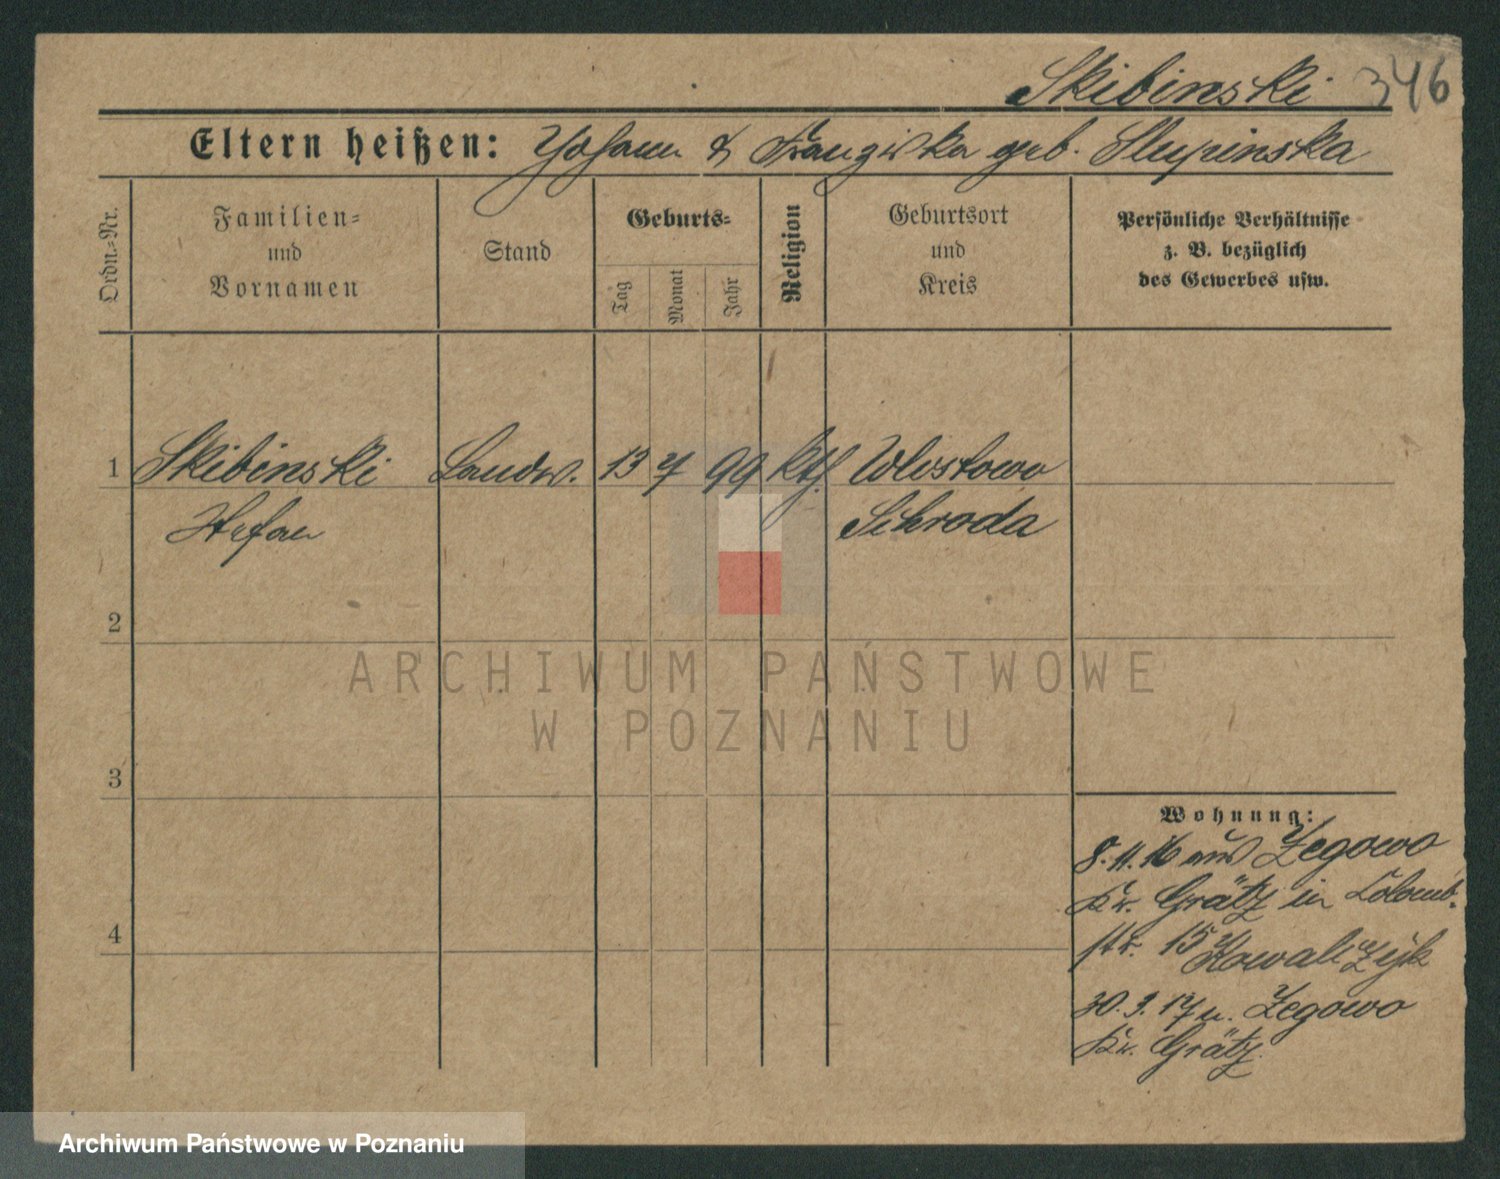 Skibinski 346
Eltern heißen: Johann & Franziska geb. Slupinska
Ordn=Nr.
Familien=
und
Vornamen
Stand
Geburts=
Tag
Monat
Jahr
Religion
Geburtsort
und
Kreis
Persönliche Verhältnisse
z. B. bezüglich
des Gewerbes usw.
1 Skibinski Landw. 13 7 99 kth. Wlostowo
Stefan Schroda
2
ARCHIWUM PAŃSTWOWE
W POZNANIU
3
Wohnung:
8.11.16 aus Zegowo
Kr. Grätz in Colomb.
str. 15 Kowalczyk
4
30.3.17 n. Zegowo
Kr. Grätz
Archiwum Państwowe w Poznaniu